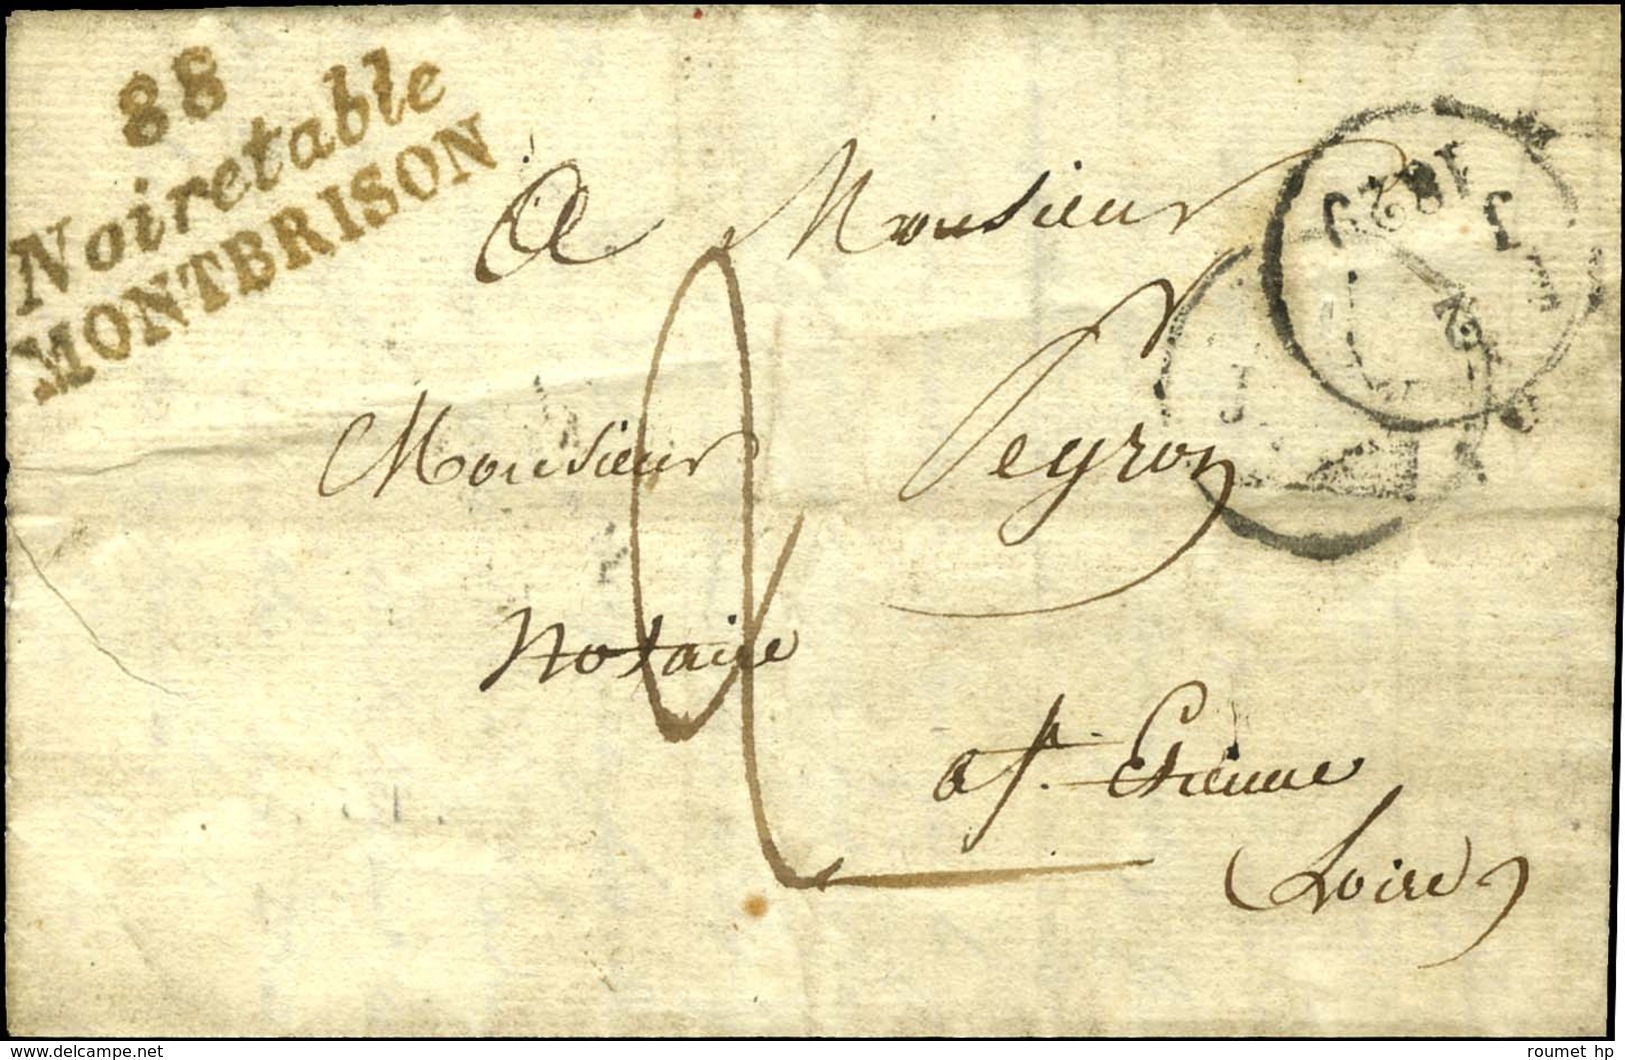 88
Noiretable
MONTBRISON
A Monsieur
Monsieur Peyron
Notaire
a St. Etienne
Loire
2
delcampe.net
roumet_hp